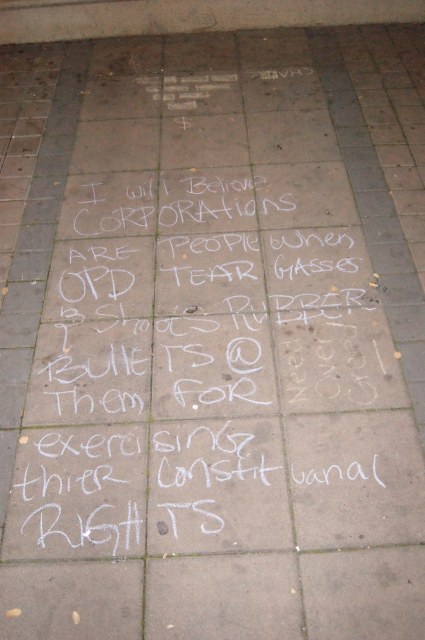 I will Believe
CORPORATIONS
ARE PEOPLE when
OPD TEAR GASSES
& Shoots RUBBER
BulleTS @
Them FOR
Need
over
Greed!
exercising
thier Constituanal
RIGHTS